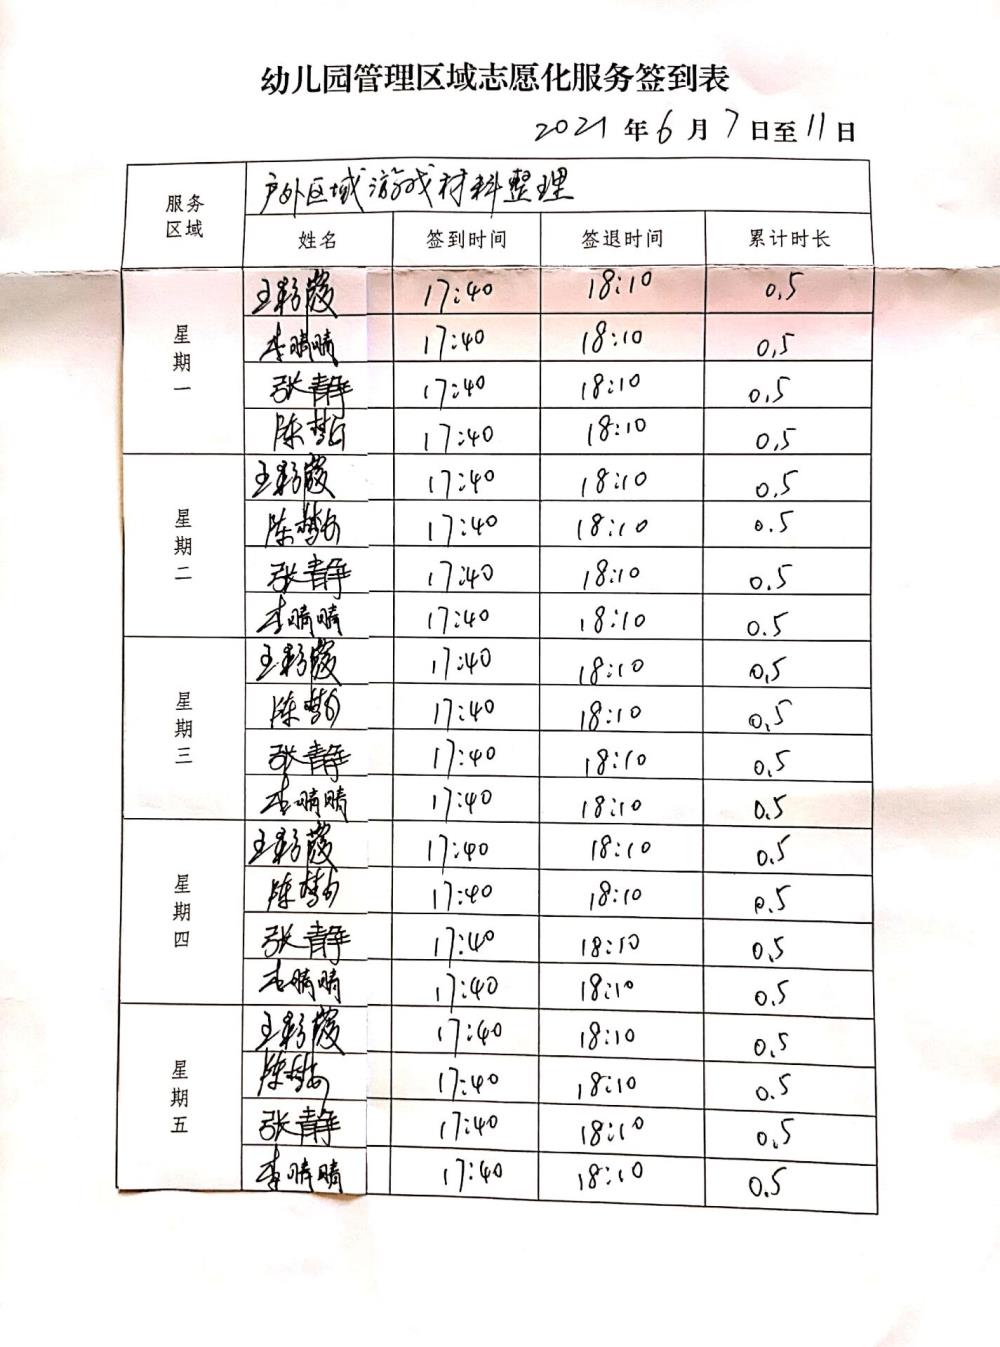 幼儿园管理区域志愿化服务签到表
2021年6月7日至11日
服务区域 户外区域游戏材料整理
姓名 签到时间 签退时间 累计时长
星期一
王彩霞 17:40 18:10 0.5
李晴晴 17:40 18:10 0.5
张静 17:40 18:10 0.5
陈梦 17:40 18:10 0.5
星期二
王彩霞 17:40 18:10 0.5
陈梦 17:40 18:10 0.5
张静 17:40 18:10 0.5
李晴晴 17:40 18:10 0.5
星期三
王彩霞 17:40 18:10 0.5
陈梦 17:40 18:10 0.5
张静 17:40 18:10 0.5
李晴晴 17:40 18:10 0.5
星期四
王彩霞 17:40 18:10 0.5
陈梦 17:40 18:10 0.5
张静 17:40 18:10 0.5
李晴晴 17:40 18:10 0.5
星期五
王彩霞 17:40 18:10 0.5
陈梦 17:40 18:10 0.5
张静 17:40 18:10 0.5
李晴晴 17:40 18:10 0.5